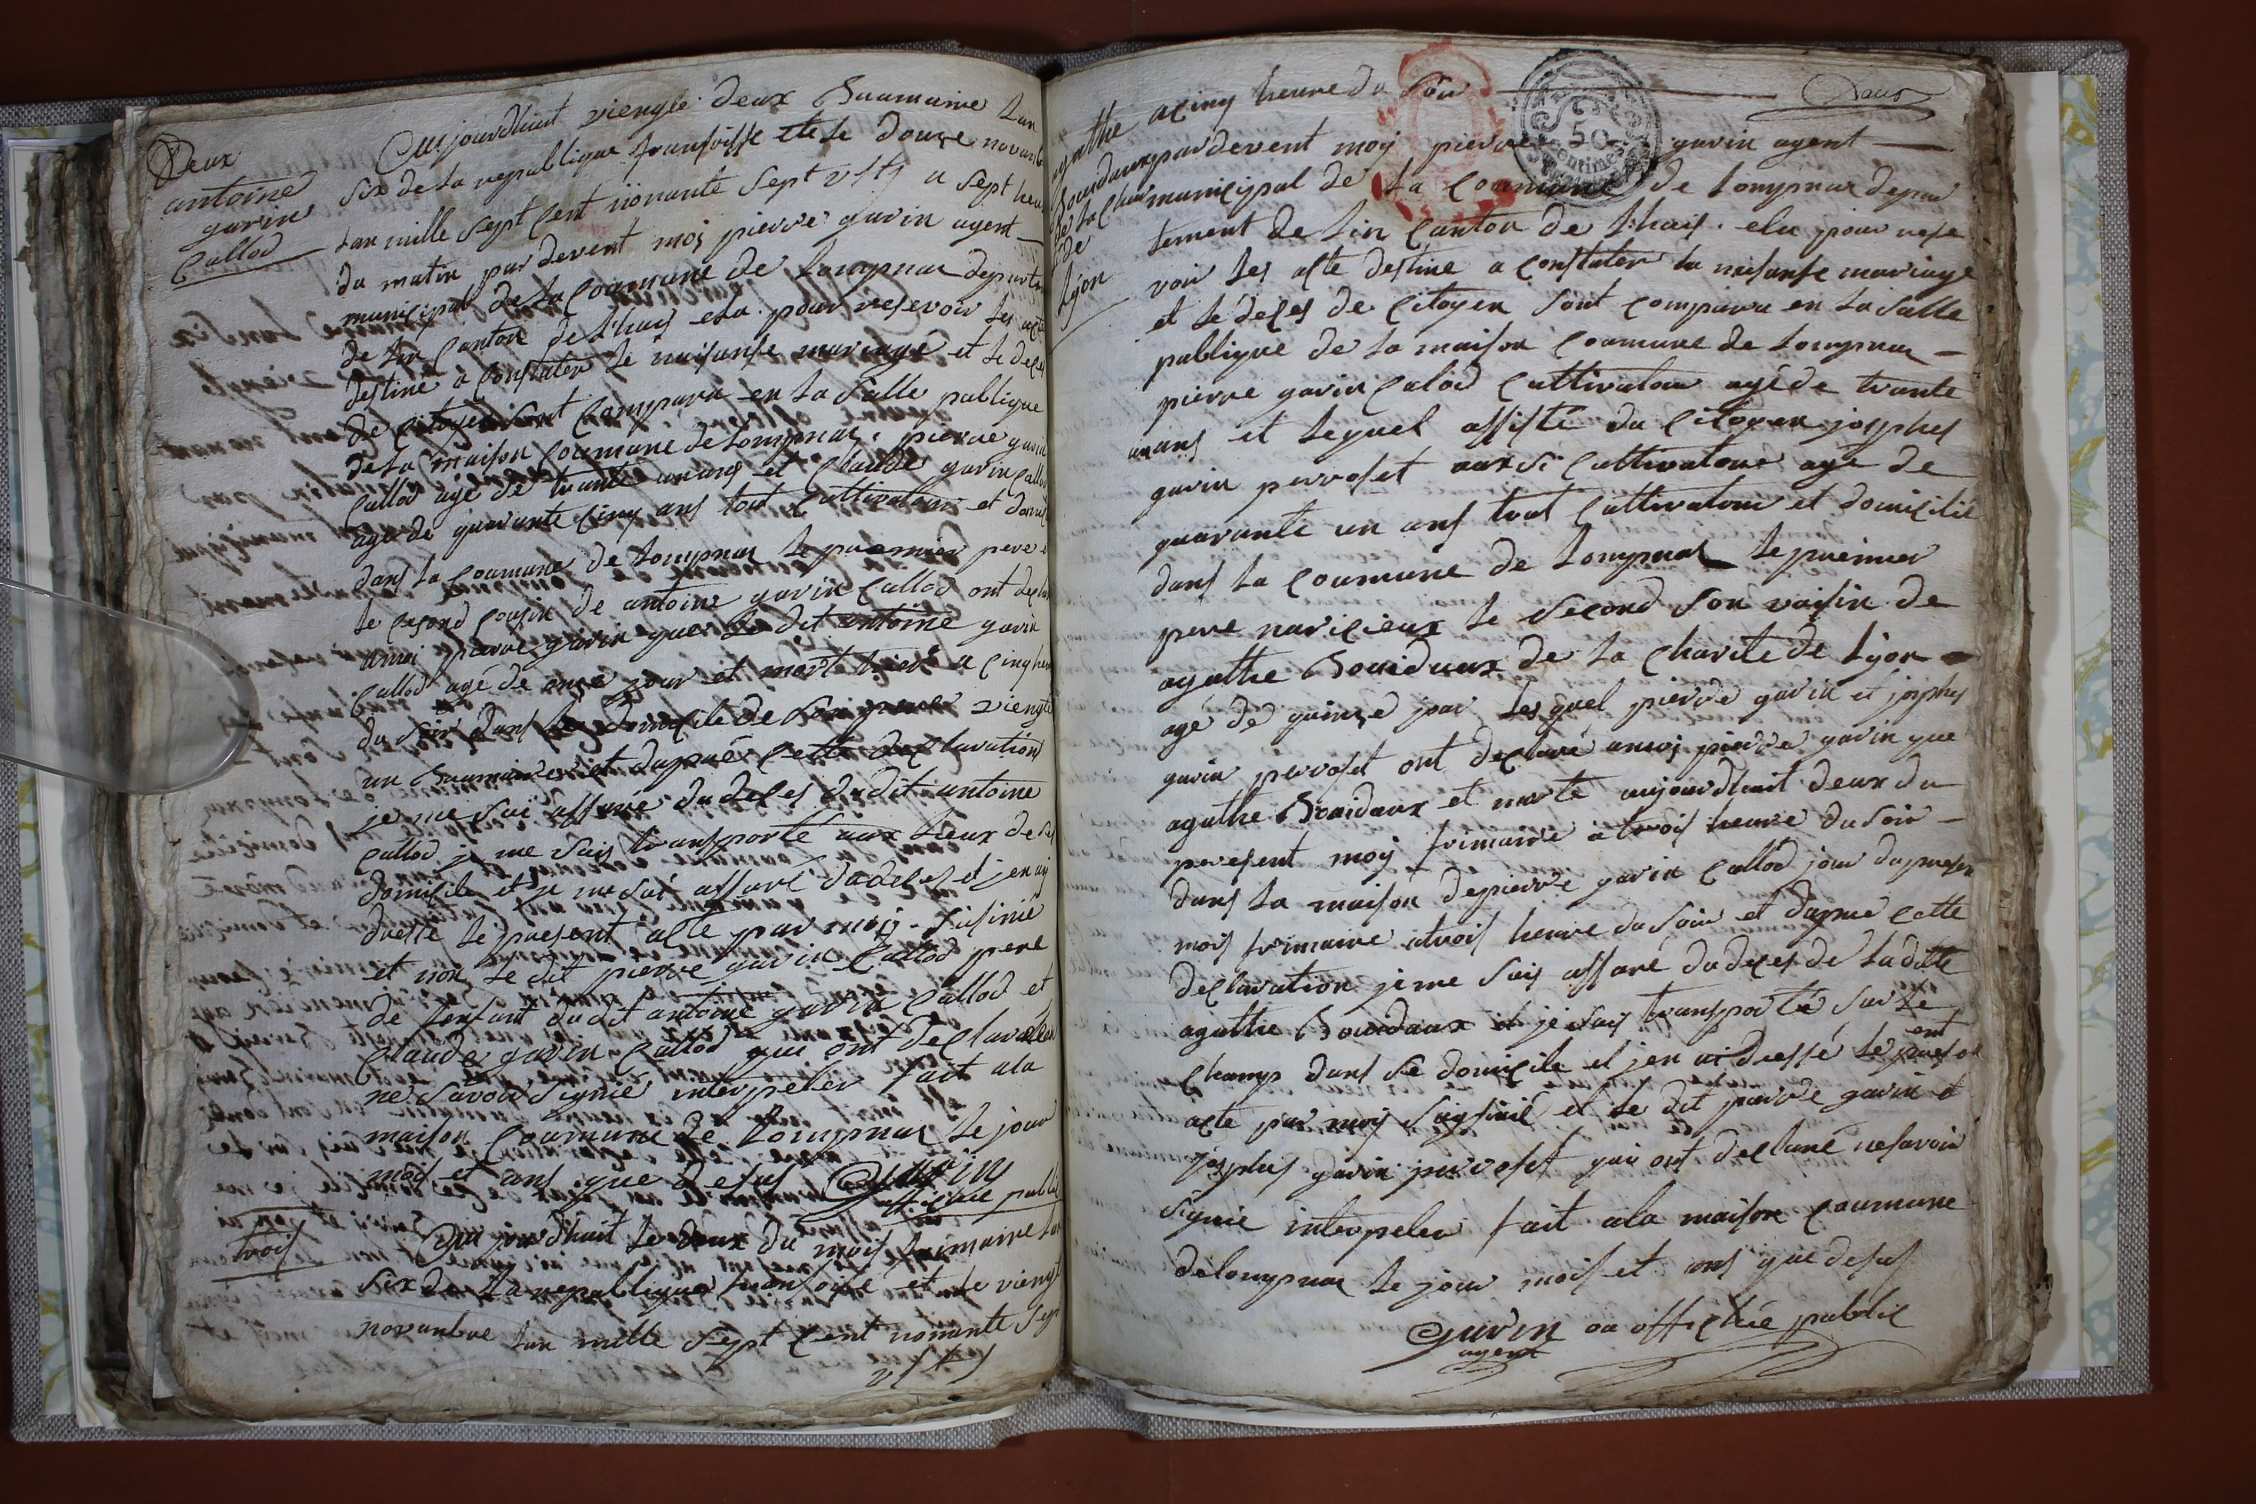 Deux
antoine
gavin
Callod
Aujourdhuit viengte deux Brumaire Lan
six de La republique fransoisse et le douze novanbre
Lan mille sept Cent nonante sept vsts a sept heure
du matin par devent moij pierre gavin agent
municipal de La Coumune de Lompnas departe
de Lin Canton de Lhuis elu pour resevoir les acte
destine a Constater Le naisansse mariage et le deces
de Citoyen Sont Comparu en La Salle publique
de La maison Coumune de Lompnas, pierre gavin
Callod age de trante unans et Claude gavin Callod
age de quarante Cinq ans tout Cultivatour et domici
dans La Coumune de Lompnas Le premier pere
le segond Cousin de antoine gavin Callod ont declare
amoi pierre gavin que Le dit antoine gavin
Callod age de onze jour et morte hiere a Cinq heure
du soir dans Le domicile de Lompnas viengte
un Brumaire et dapres Cette declaration
je me sui assure du deces du dit antoine
Callod je me suis transporte aux Lieux de se
domicile et je me sui assure du deces et jen ai
dresse Le present acte par moij sisinie
et non Le dit pierre gavin Callod pere
de Lenfant du dit antoine gavin Callod et
Claude gavin Callod qui ont declare
ne savoir signie interpeler fait ala
maison Coumune de Lompnas Le jour
mois et ans que desus Gavin
officie public
trois
Aujourdhuit Le deux du mois frimaire Lan
six de La republique fransoise et le viengt
novanbre Lan mille sept Cent nonante sept
vsts
agathe
Bourdaux
de La Char
de
Lyon
acinq heure du soir
Deux
50
centimes
pardevent moij pierre gavin agent
municipal de La Coumune de Lompnas depar
tement de Lin Canton de Lhuis elu pour rese
voir Les acte destine a Constater La naisansse mariage
et Le deces de Citoyen sont Comparu en La Salle
publique de La maison Coumune de Lompnas
pierre gavin Calod Cultivatour age de trante
unans et Lequel assiste du Citoyen josphes
gavin perroset aussi Cultivatour age de
quarante un ans tout Cultivatour et domicilie
dans La Coumune de Lompnas Le premier
pere naricieux Le second son voisin de
agathe Bourdaux de La Charite de Lyon
age de quinze jour Lesquel pierre gavin et josphes
gavin perroset ont declare amoij pierre gavin que
agathe Bourdaux et morte aujourdhuit deux du
peresent moij frimaire a trois heure du soir
dans La maison de pierre gavin Callod jour du presen
mois frimaire atrois heure du soir et dapres Cette
declaration jeme suis assure du deces de Laditte
agathe Bourdaux et je suis transporte sur Le
Champ dans se domicile et jen ai dresse Le present
acte par moij sousinie et Le dit pierre gavin et
josphes gavin perroset qui ont declare nesavoir
signie interpeler fait ala maison Coumune
de Lompnas Le jour mois et ans que desus
Gavin ou officie public
agent